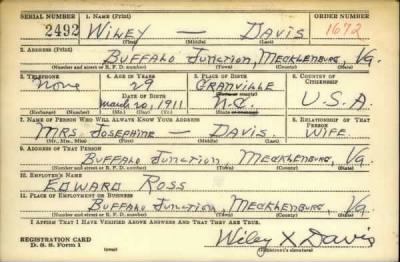 SERIAL NUMBER 1. NAME (Print) ORDER NUMBER
2492 WILEY — DAVIS 1672
(First) (Middle) (Last)
2. ADDRESS (Print)
BUFFALO JUNCTION, MECKLENBURG, VA.
(Number and street or R. F. D. number) (Town) (County) (State)
3. TELEPHONE 4. AGE IN YEARS 5. PLACE OF BIRTH 6. COUNTRY OF CITIZENSHIP
None 29 GRANVILLE
DATE OF BIRTH
March 20, 1911 N.C. U.S.A.
(Exchange) (Number) (Mo.) (Day) (Yr.)
7. NAME OF PERSON WHO WILL ALWAYS KNOW YOUR ADDRESS 8. RELATIONSHIP OF THAT PERSON
MRS. JOSEPHINE — DAVIS. WIFE
(Mr., Mrs., Miss) (First) (Middle) (Last)
9. ADDRESS OF THAT PERSON
BUFFALO JUNCTION, MECKLENBURG, VA
(Number and street or R. F. D. number) (Town) (County) (State)
10. EMPLOYER'S NAME
EDWARD ROSS
11. PLACE OF EMPLOYMENT OR BUSINESS
BUFFALO JUNCTION, MECKLENBURG, VA
(Number and street or R. F. D. number) (Town) (County) (State)
I AFFIRM THAT I HAVE VERIFIED ABOVE ANSWERS AND THAT THEY ARE TRUE.
REGISTRATION CARD
D. S. S. Form 1 (over) Wiley X Davis
(Registrant's signature)